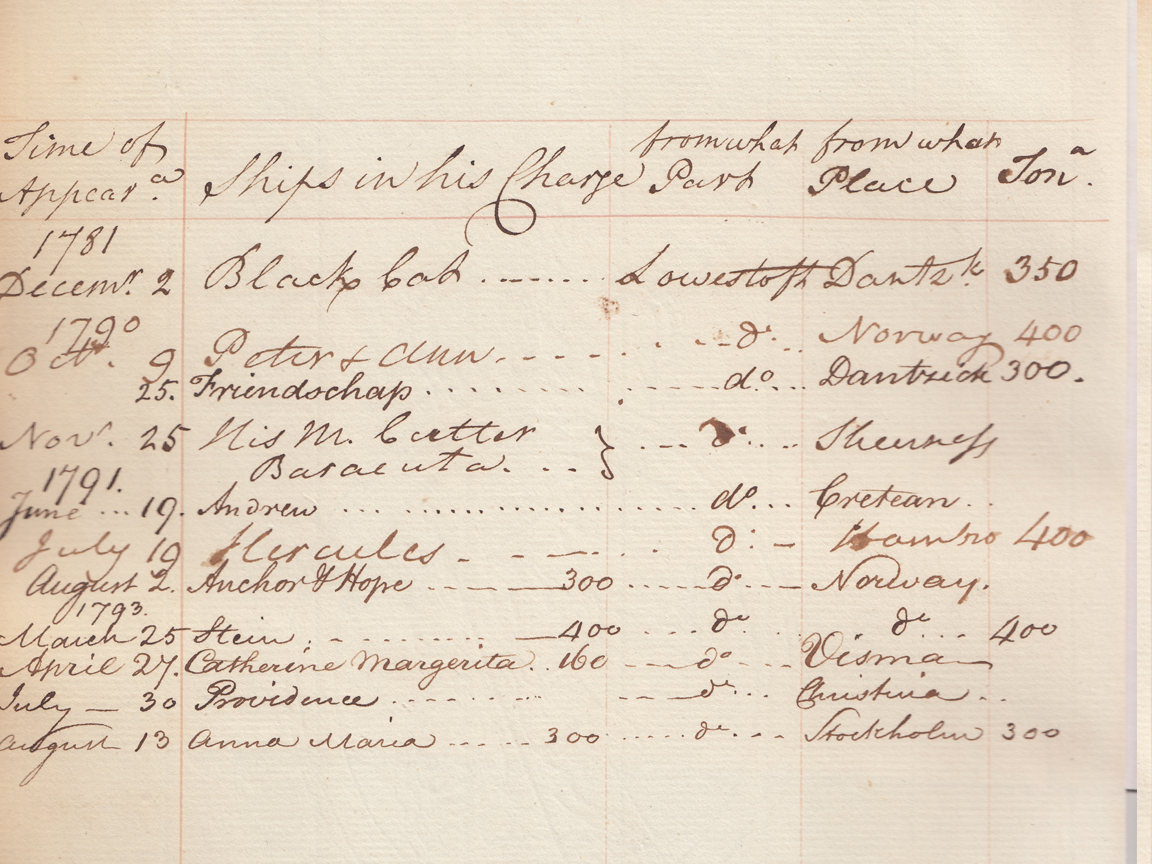 Time of Appear.ce Ships in his Charge from what Part from what Place Ton.e
1781
Decemr. 2 Black Cat ........ Lowestoft Dantzk. 350
1790
Octr. 9 Peter & Ann. - - - - - - - do. .. Norway 400
25. Friendschap .......... do... Dantzick 300.
Novr. 25 His M. Cutter } ... do. ... Sheerness
Baracuta. . ..
1791.
June ... 19. Andrew ................ do... Cretean ..
July 19 Hercules - - - - . . . . do: - Hambro 400
August 2. Anchor & Hope ------300 ..... do. .--- Norway.
1793.
March 25 Stein . - ........ -400 .... do. .. do. ... 400
April 27. Catherine Margerita .. 160 ---- do. ... Visma
July - 30 Providence .......... - - - do. ... Christina ..
August 13 Anna Maria ......300 ..... do. ... Stockholm 300